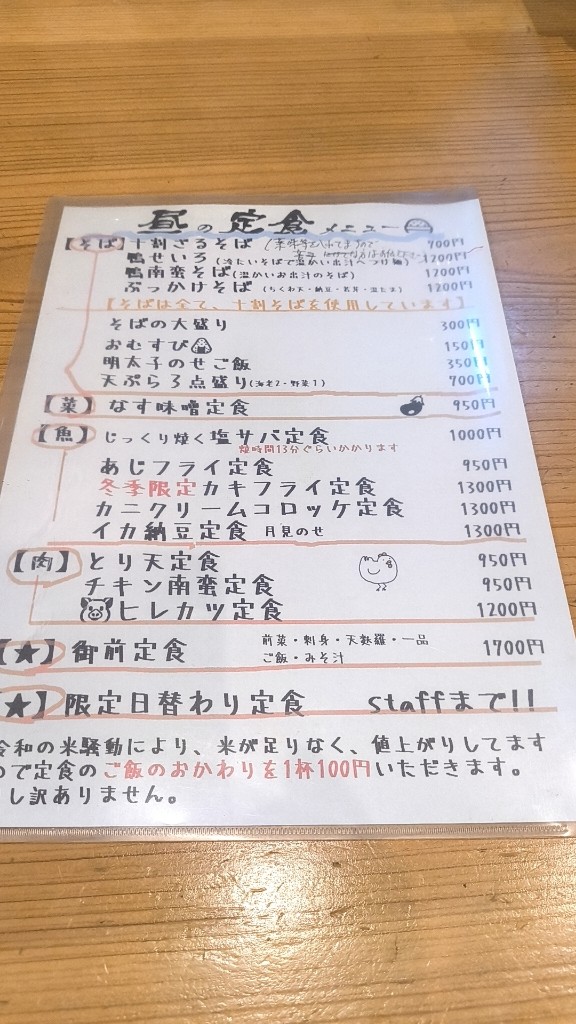 昼の定食メニュー
【そば】十割ざるそば 900円
鴨せいろ(冷たいそばで温かい出汁へつけ麺) 1200円
鴨南蛮そば(温かいお出汁のそば) 1200円
ぶっかけそば(ちくわ天・納豆・若芽・温たま) 1200円
【そばは全て、十割そばを使用しています】
そばの大盛り 300円
おむすび 150円
明太子のせご飯 350円
天ぷら3点盛り(海老2・野菜1) 700円
【菜】なす味噌定食 950円
【魚】じっくり焼く塩サバ定食 1000円
焼時間13分ぐらいかかります
あじフライ定食 950円
冬季限定カキフライ定食 1300円
カニクリームコロッケ定食 1300円
イカ納豆定食 月見のせ 1300円
【肉】とり天定食 950円
チキン南蛮定食 950円
ヒレカツ定食 1200円
【★】御前定食 前菜・刺身・天麩羅・一品 1700円
ご飯・みそ汁
★】限定日替わり定食 staffまで!!
令和の米騒動により、米が足りなく、値上がりしてます
ので定食のご飯のおかわりを1杯100円いただきます。
し訳ありません。